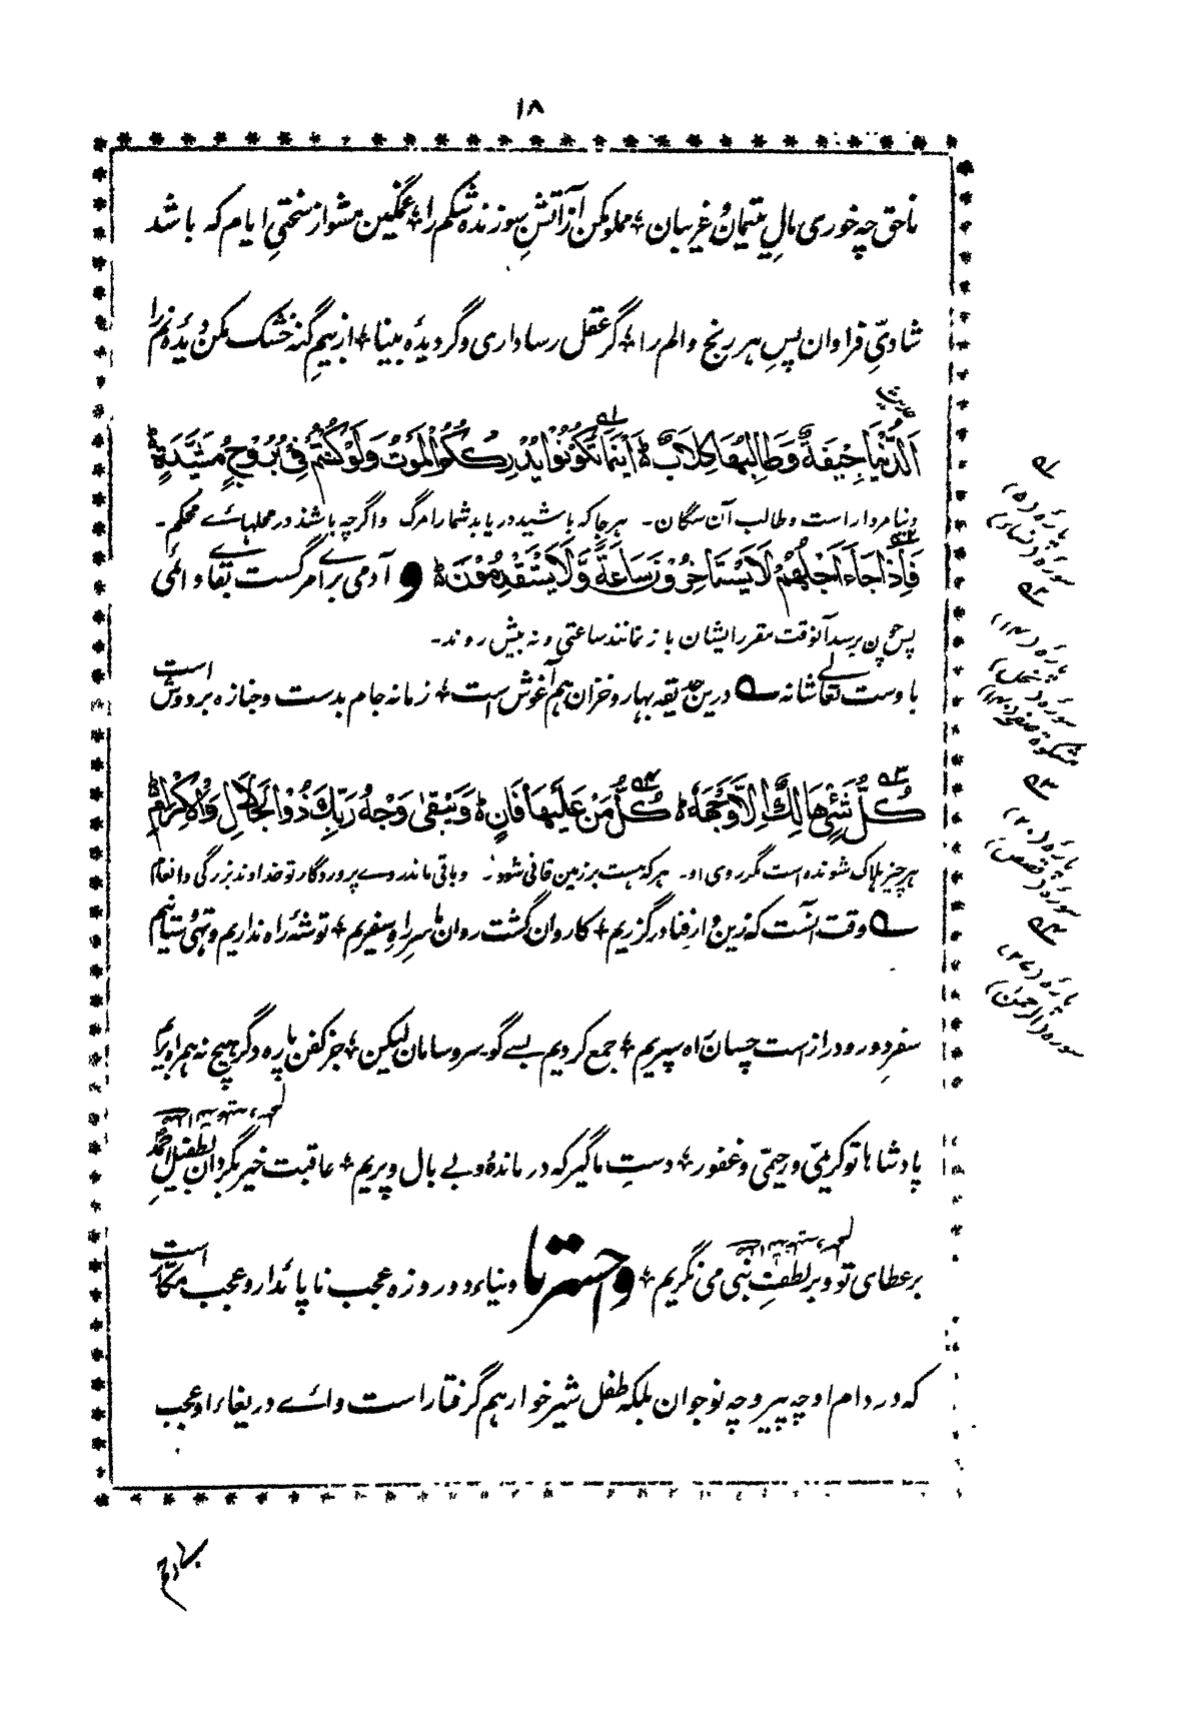 ۱۸
ناحق چه خوری مالِ یتیمان و غریبان ٭ مملو مکن از آتشِ سوزنده شکم را ٭ غمگین مشو از سختیِ ایام که باشد
شادیِّ فراوان پسِ هر رنج و الم را ٭ گر عقل رسا داری و گر دیدهٔ بینا ٭ از بیمِ گنه خشک مکن دیدهٔ نم را
حدیث
اَلدُّنْيَا جِيْفَةٌ وَّطَالِبُهَا كِلَابٌ ؕ اَيْنَمَا تَكُوْنُوْا يُدْرِكْكُّمُ الْمَوْتُ وَلَوْ كُنْتُمْ فِيْ بُرُوْجٍ مُّشَيَّدَةٍ ؕ
دنیا مردار است و طالب آن سگان۔ هر جا که باشید دریابد شما را مرگ واگرچه باشند در محلهائے محکم۔
فَاِذَا جَآءَ اَجَلُهُمْ لَا يَسْتَاْخِرُوْنَ سَاعَةً وَّلَا يَسْتَقْدِمُوْنَ ؕ و آدمی برائے مرگست بقائے دائمی
پس چون برسد آنوقت مقرر ایشان باز نمانند ساعتی و نه پیش روند۔
با وست تعالےٰ شانه ؎ درین حدیقه بهار و خزان هم آغوش است ٭ زمانه جام بدست و جنازه بر دوش است
كُلُّ شَيْءٍ هَالِكٌ اِلَّا وَجْهَهٗ ؕ كُلُّ مَنْ عَلَيْهَا فَانٍ ؕ وَّيَبْقٰى وَجْهُ رَبِّكَ ذُو الْجَلَالِ وَالْاِكْرَامِ ؕ
هر چیز هلاک شونده است مگر روی او۔ هر که هست بر زمین فانی شونده و باقی ماند روے پروردگار تو خداوند بزرگی و انعام
؎ وقت آنست که زین دارِ فنا در گزریم ٭ کاروان گشت روان ما بسرِ راهِ سفریم ٭ توشهٔ راه نداریم و تهی‌دستانیم
سفرِ دور و دراز است چسان راه سپریم ٭ جمع کردیم بسے گو سر و سامان لیکن ٭ جز کفن پاره دگر هیچ نه همراه بریم
پادشاها تو کریمیّ و رحیمی و غفور ٭ دستِ ما گیر که در مانده و بے بال و پریم ٭ عاقبت خیر بگردان بطفیلِ احمد
بر عطای تو و بر لطفِ نبی می نگریم ٭ واحسرتا دنیاء دو روزه عجب ناپائدار و عجب مکّار است
که در دام او چه پیر و چه نوجوان بلکه طفل شیرخوار هم گرفتار است وائے دریغا او عجب
۹۱
پارهٔ (۵)
سورهٔ (نساء)
۹۲
پارهٔ (۱۴)
سورهٔ (نحل)
مشکوٰة صفحه
۹۳
پارهٔ (۲۰)
سورهٔ (قصص)
۹۴
پارهٔ (۲۷)
سورهٔ (الرحمٰن)